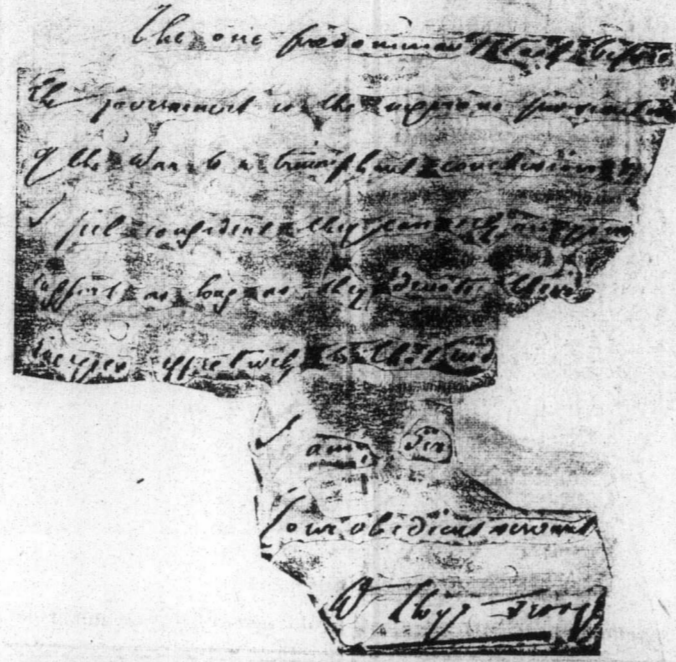 The one predominant task before
the Government is the vigorous prosecution
of the War to a triumphant conclusion
I feel confident they can rely on your
support as long as they devote their
energies effectively to that end
I am, Sir
Your obedient servant
D Lloyd George